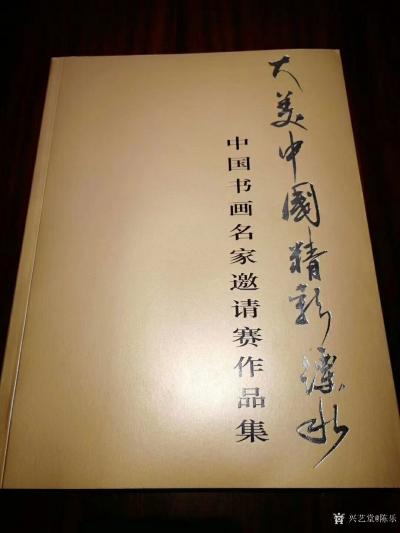 大美中國精彩溧水
中国书画名家邀请赛作品集
兴艺堂@陈乐